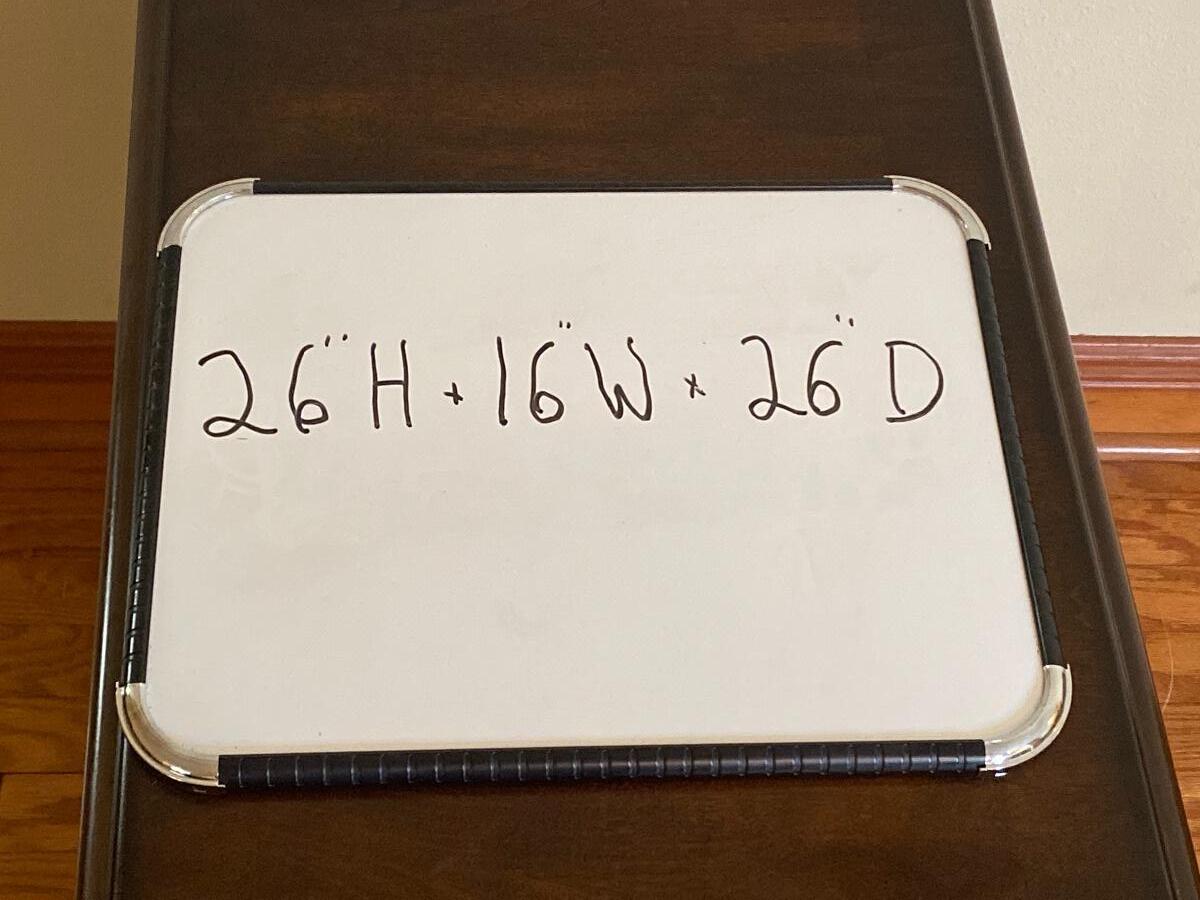 26" H x 16" W x 26" D